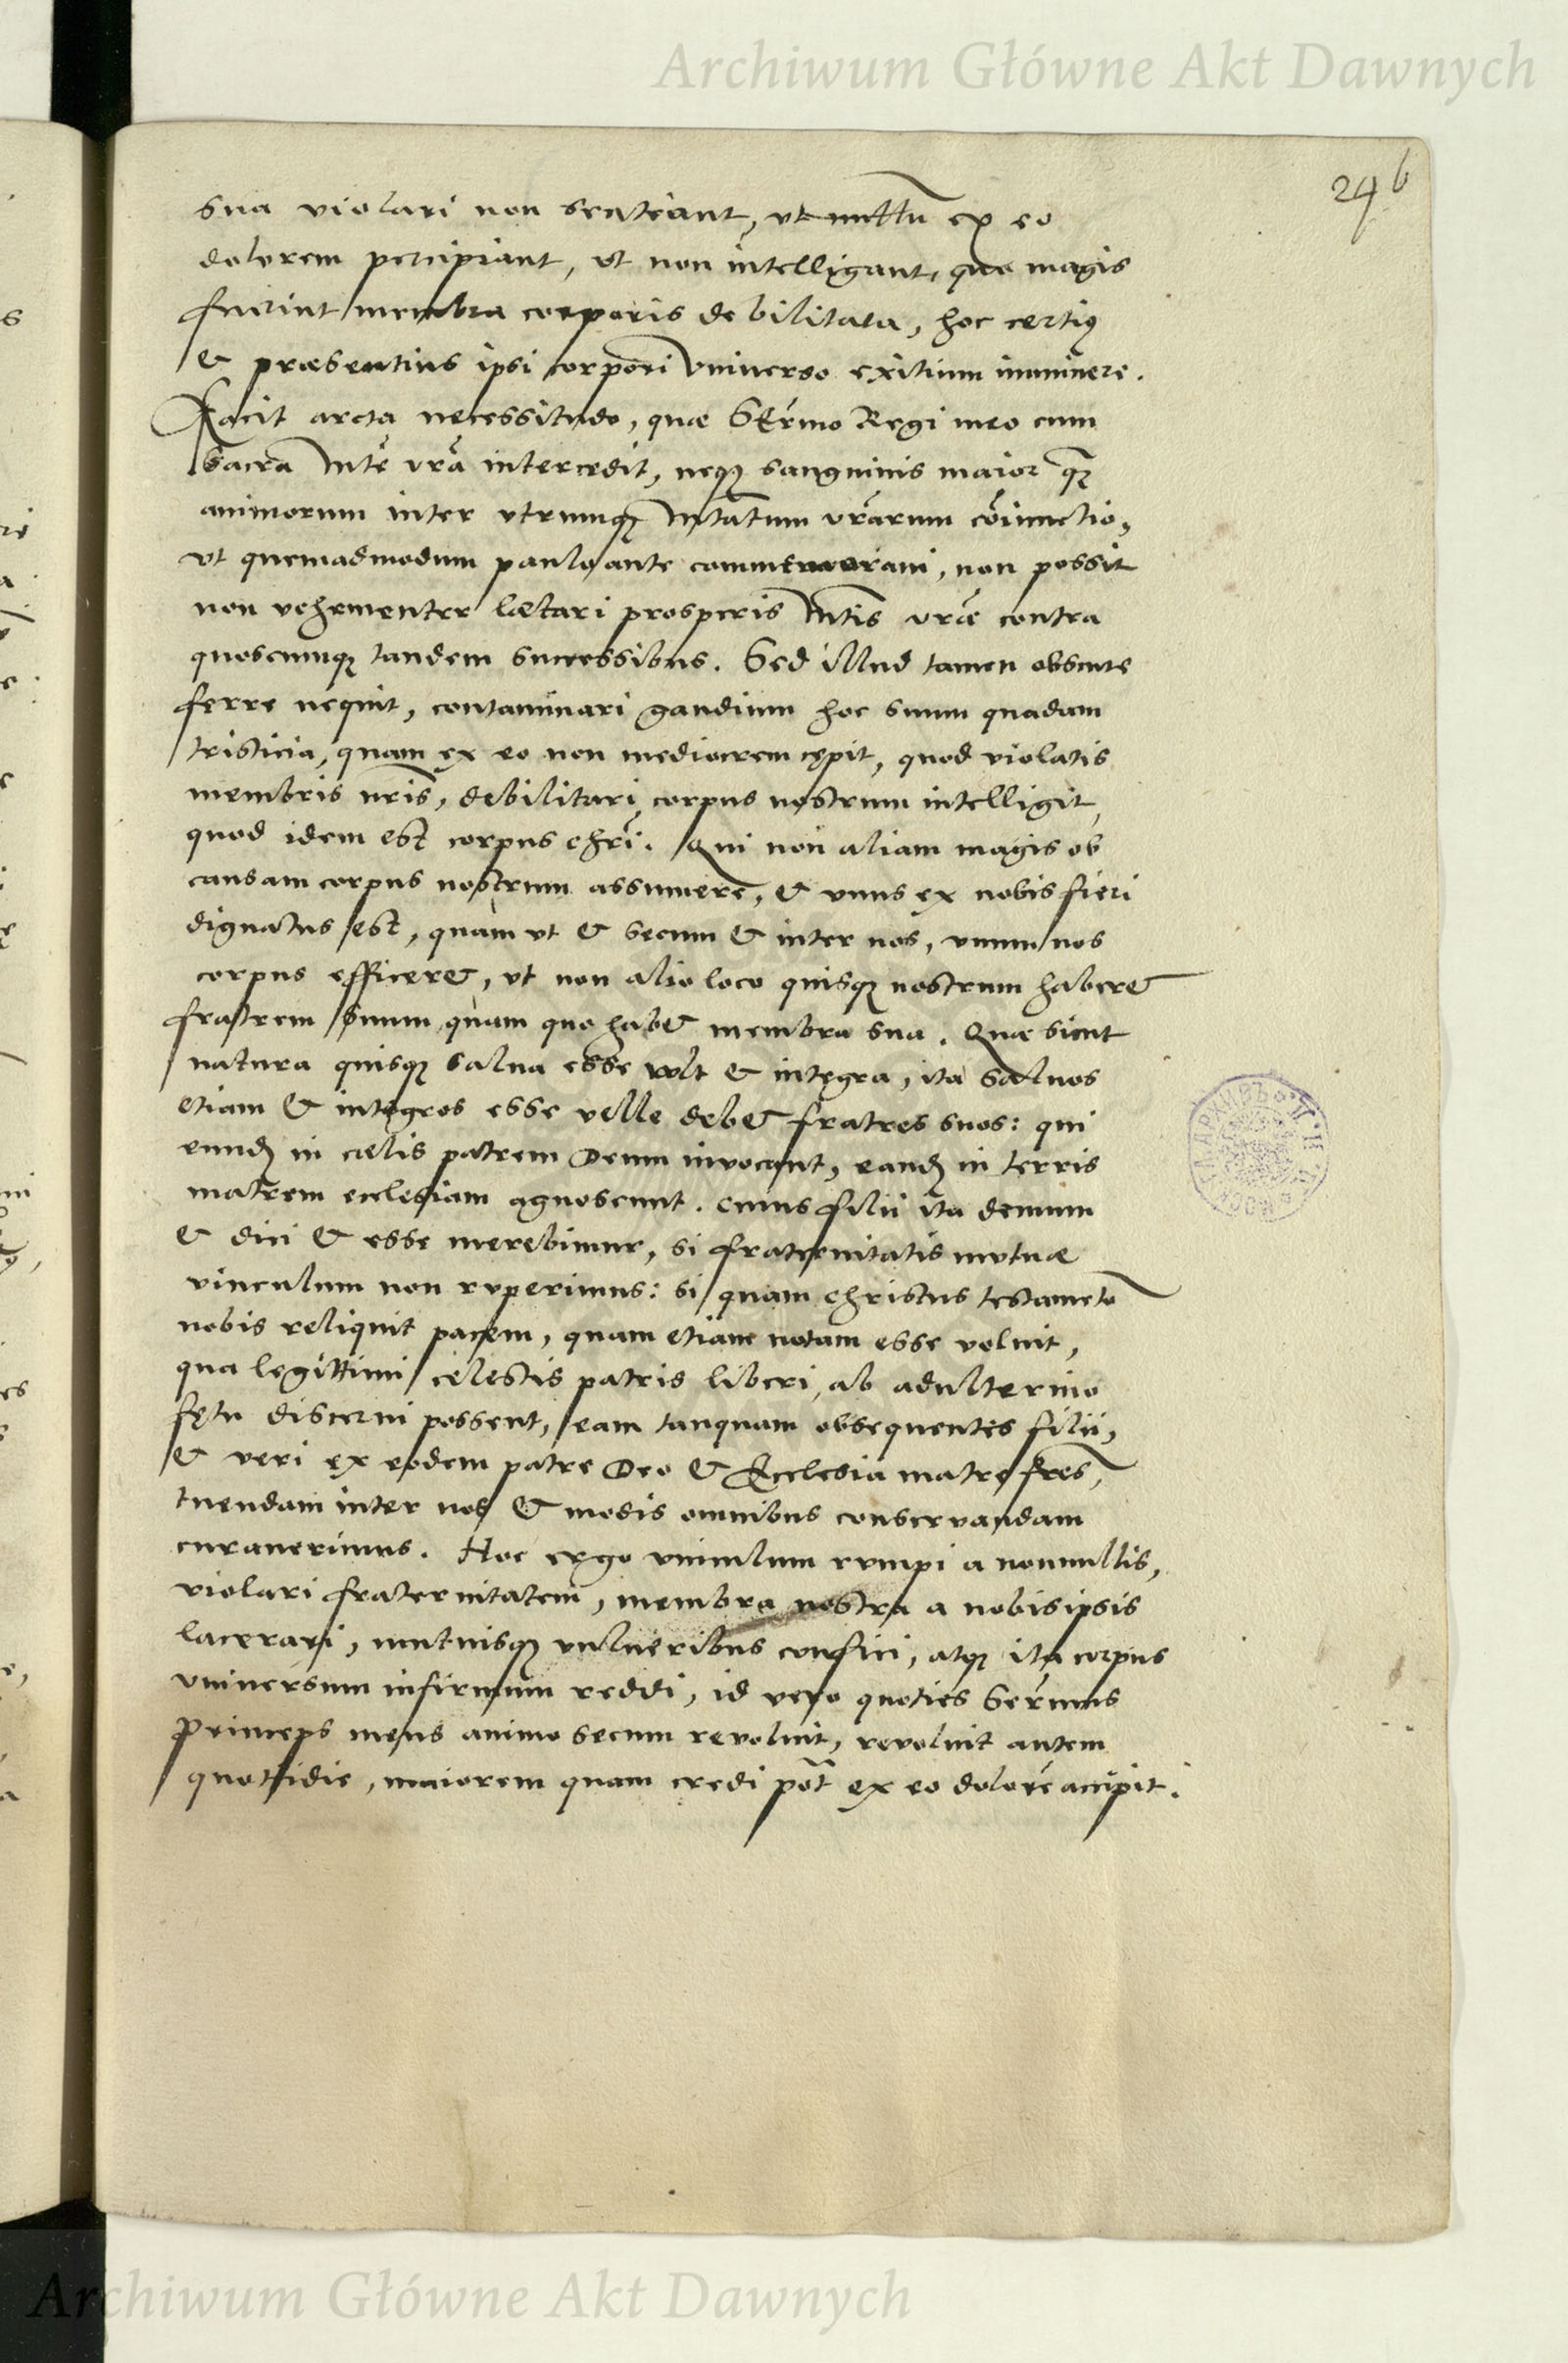 Archiwum Główne Akt Dawnych
246
sua violari non sentiant, ut nullũ ex eo
dolorem percipiant, ut non intelligant, quo magis
fuerint membra corporis debilitata, hoc certiꝰ
& præsentius ipsi corpori vniuerso exitium imminere.
Facit arcta necessitudo, quæ Sermo Regi meo cum
Sacra Mte vrã intercedit, neqꝫ sanguinis maior qꝫ
animorum inter vtrumqꝫ Mtatum vrarum coniunctio,
vt quemadmodum paulo ante commemoraui, non possit
non vehementer lætari prosperis Mtis vræ contra
quoscumqꝫ tandem successibus. Sed illud tamen
ferre nequit, contaminari gaudium hoc suum quadam
tristicia, quam ex eo non mediocrem cępit, quod violatis
membris nris, debilitari corpus nostrum intelligit,
quod idem est corpus chri. Qui non aliam magis ob
causam corpus nostrum assumere, & vnus ex nobis fieri
dignatus est, quàm vt & secum & inter nos, vnum nos
corpus efficeret, vt non alio loco quisqꝫ nostrum haberet
fratrem suum, quàm quo habet membra sua. Quæ sicut
natura quisqꝫ salua esse vult & integra, ita saluos
etiam & integros esse velle debet fratres suos: qui
eundꝫ in cælis patrem Deum inuocant, eandꝫ in terris
matrem ecclesiam agnoscunt. cuius filii ita demum
& dici & esse merebimur, si fraternitatis mutuæ
vinculum non ruperimus: si quam christus testameto
nobis reliquit pacem, quam etiam notam esse voluit,
qua legittimi celestis patris liberi, ab adulterino
fętu discerni possent, eam tanquam obsequentes filii,
& veri ex eodem patre Deo & Ecclesia matre fres,
tuendam inter nos & modis omnibus conseruandam
curauerimus. Hoc ergo vinculum rumpi a nonnullis,
violari fraternitatem, membra nostra a nobis ipsis
lacerari, mutuisqꝫ vulneribus confici, atqꝫ ita corpus
vniuersum infirmum reddi, id vero quoties Sermus
Princeps meus animo secum reuoluit, reuoluit autem
quottidie, maiorem quam credi pot ex eo dolorẽ accipit.
Archiwum Główne Akt Dawnych